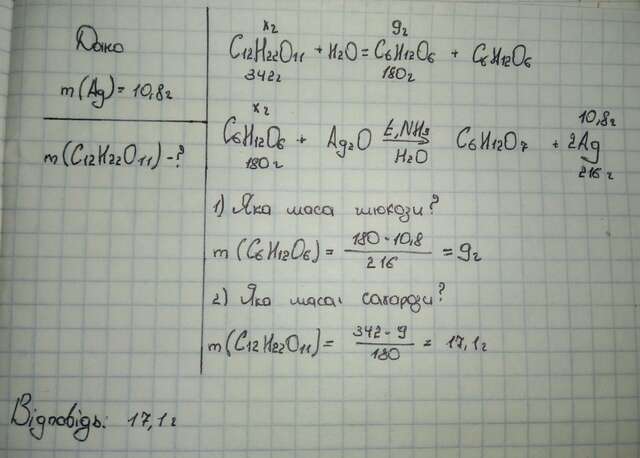 Дано
m(Ag)=10,8г
m(C12H22O11)-?
xг 9г
C12H22O11 + H2O = C6H12O6 + C6H12O6
342г 180г
xг 10,8г
C6H12O6 + Ag2O t,NH3 → H2O C6H12O7 + 2Ag
180г 216г
1) Яка маса глюкози?
m(C6H12O6) = 180·10,8 / 216 = 9г
2) Яка маса сахарози?
m(C12H22O11) = 342·9 / 180 = 17,1г
Відповідь: 17,1г